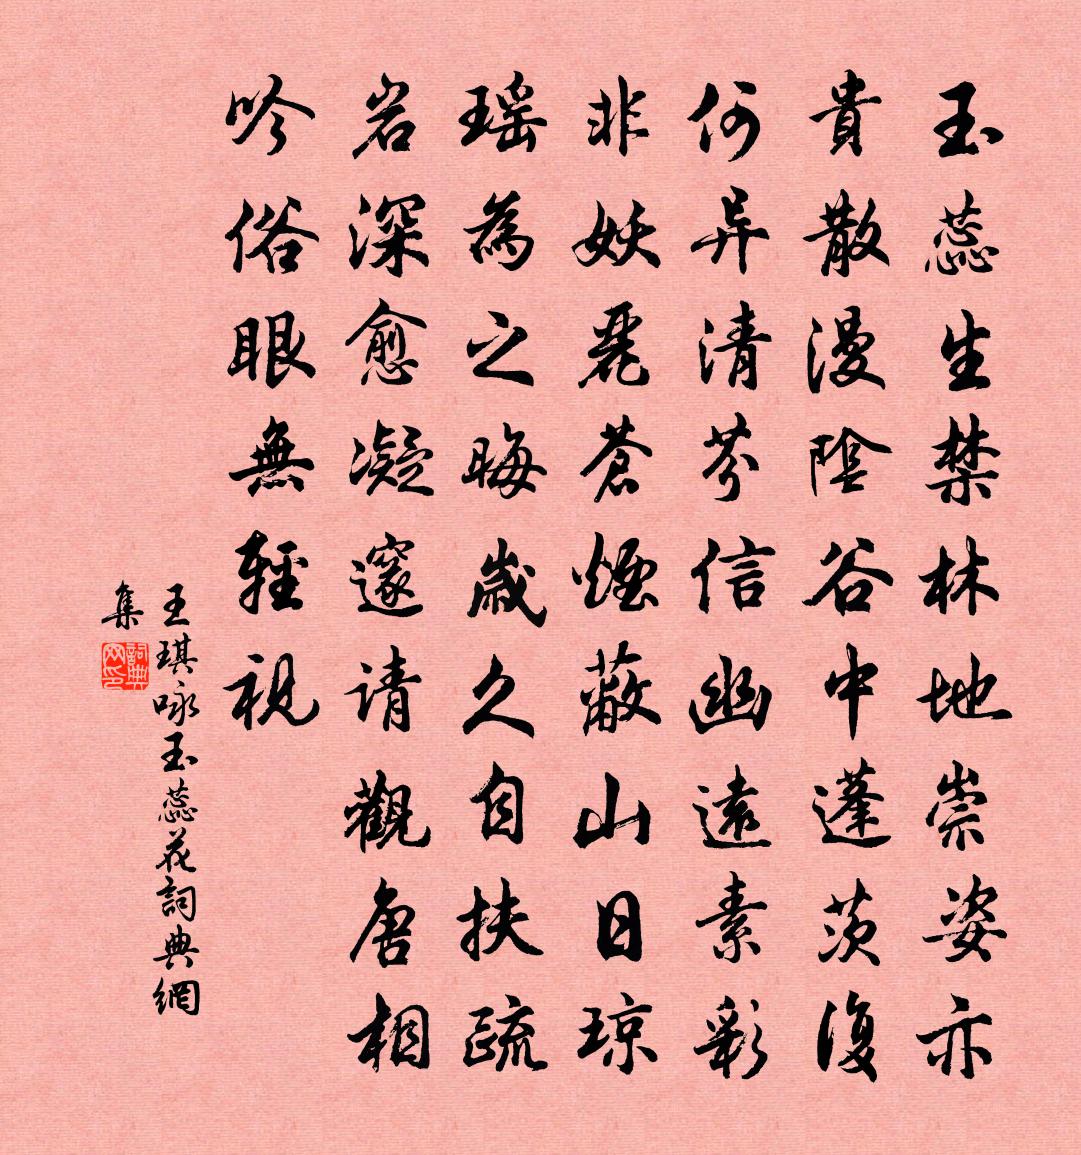 玉蕊生禁林地崇姿亦
貴散漫陰谷中蓬茨復
何异清芬信幽遠素彩
非妖麗蒼煙蔽山日琼
瑶為之晦歲久自扶疏
岩深愈凝邃请觀唐相
吟俗眼無輕視
王琪咏玉蕊花詞典網
集
詞典网印